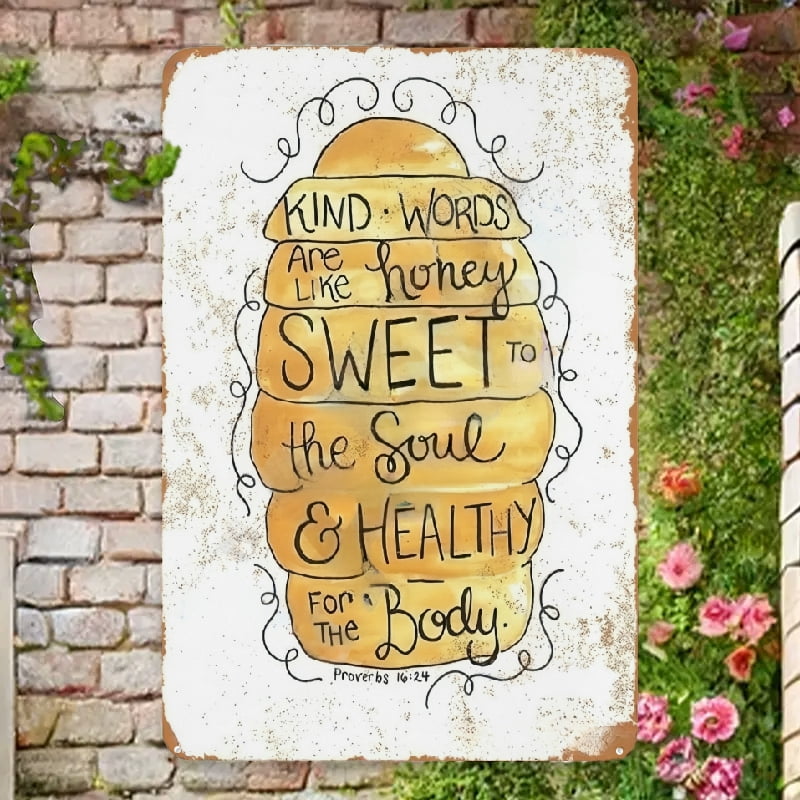 KIND · WORDS
Are LIKE honey
SWEET TO
the Soul
& HEALTHY
FOR THE Body.
Proverbs 16:24